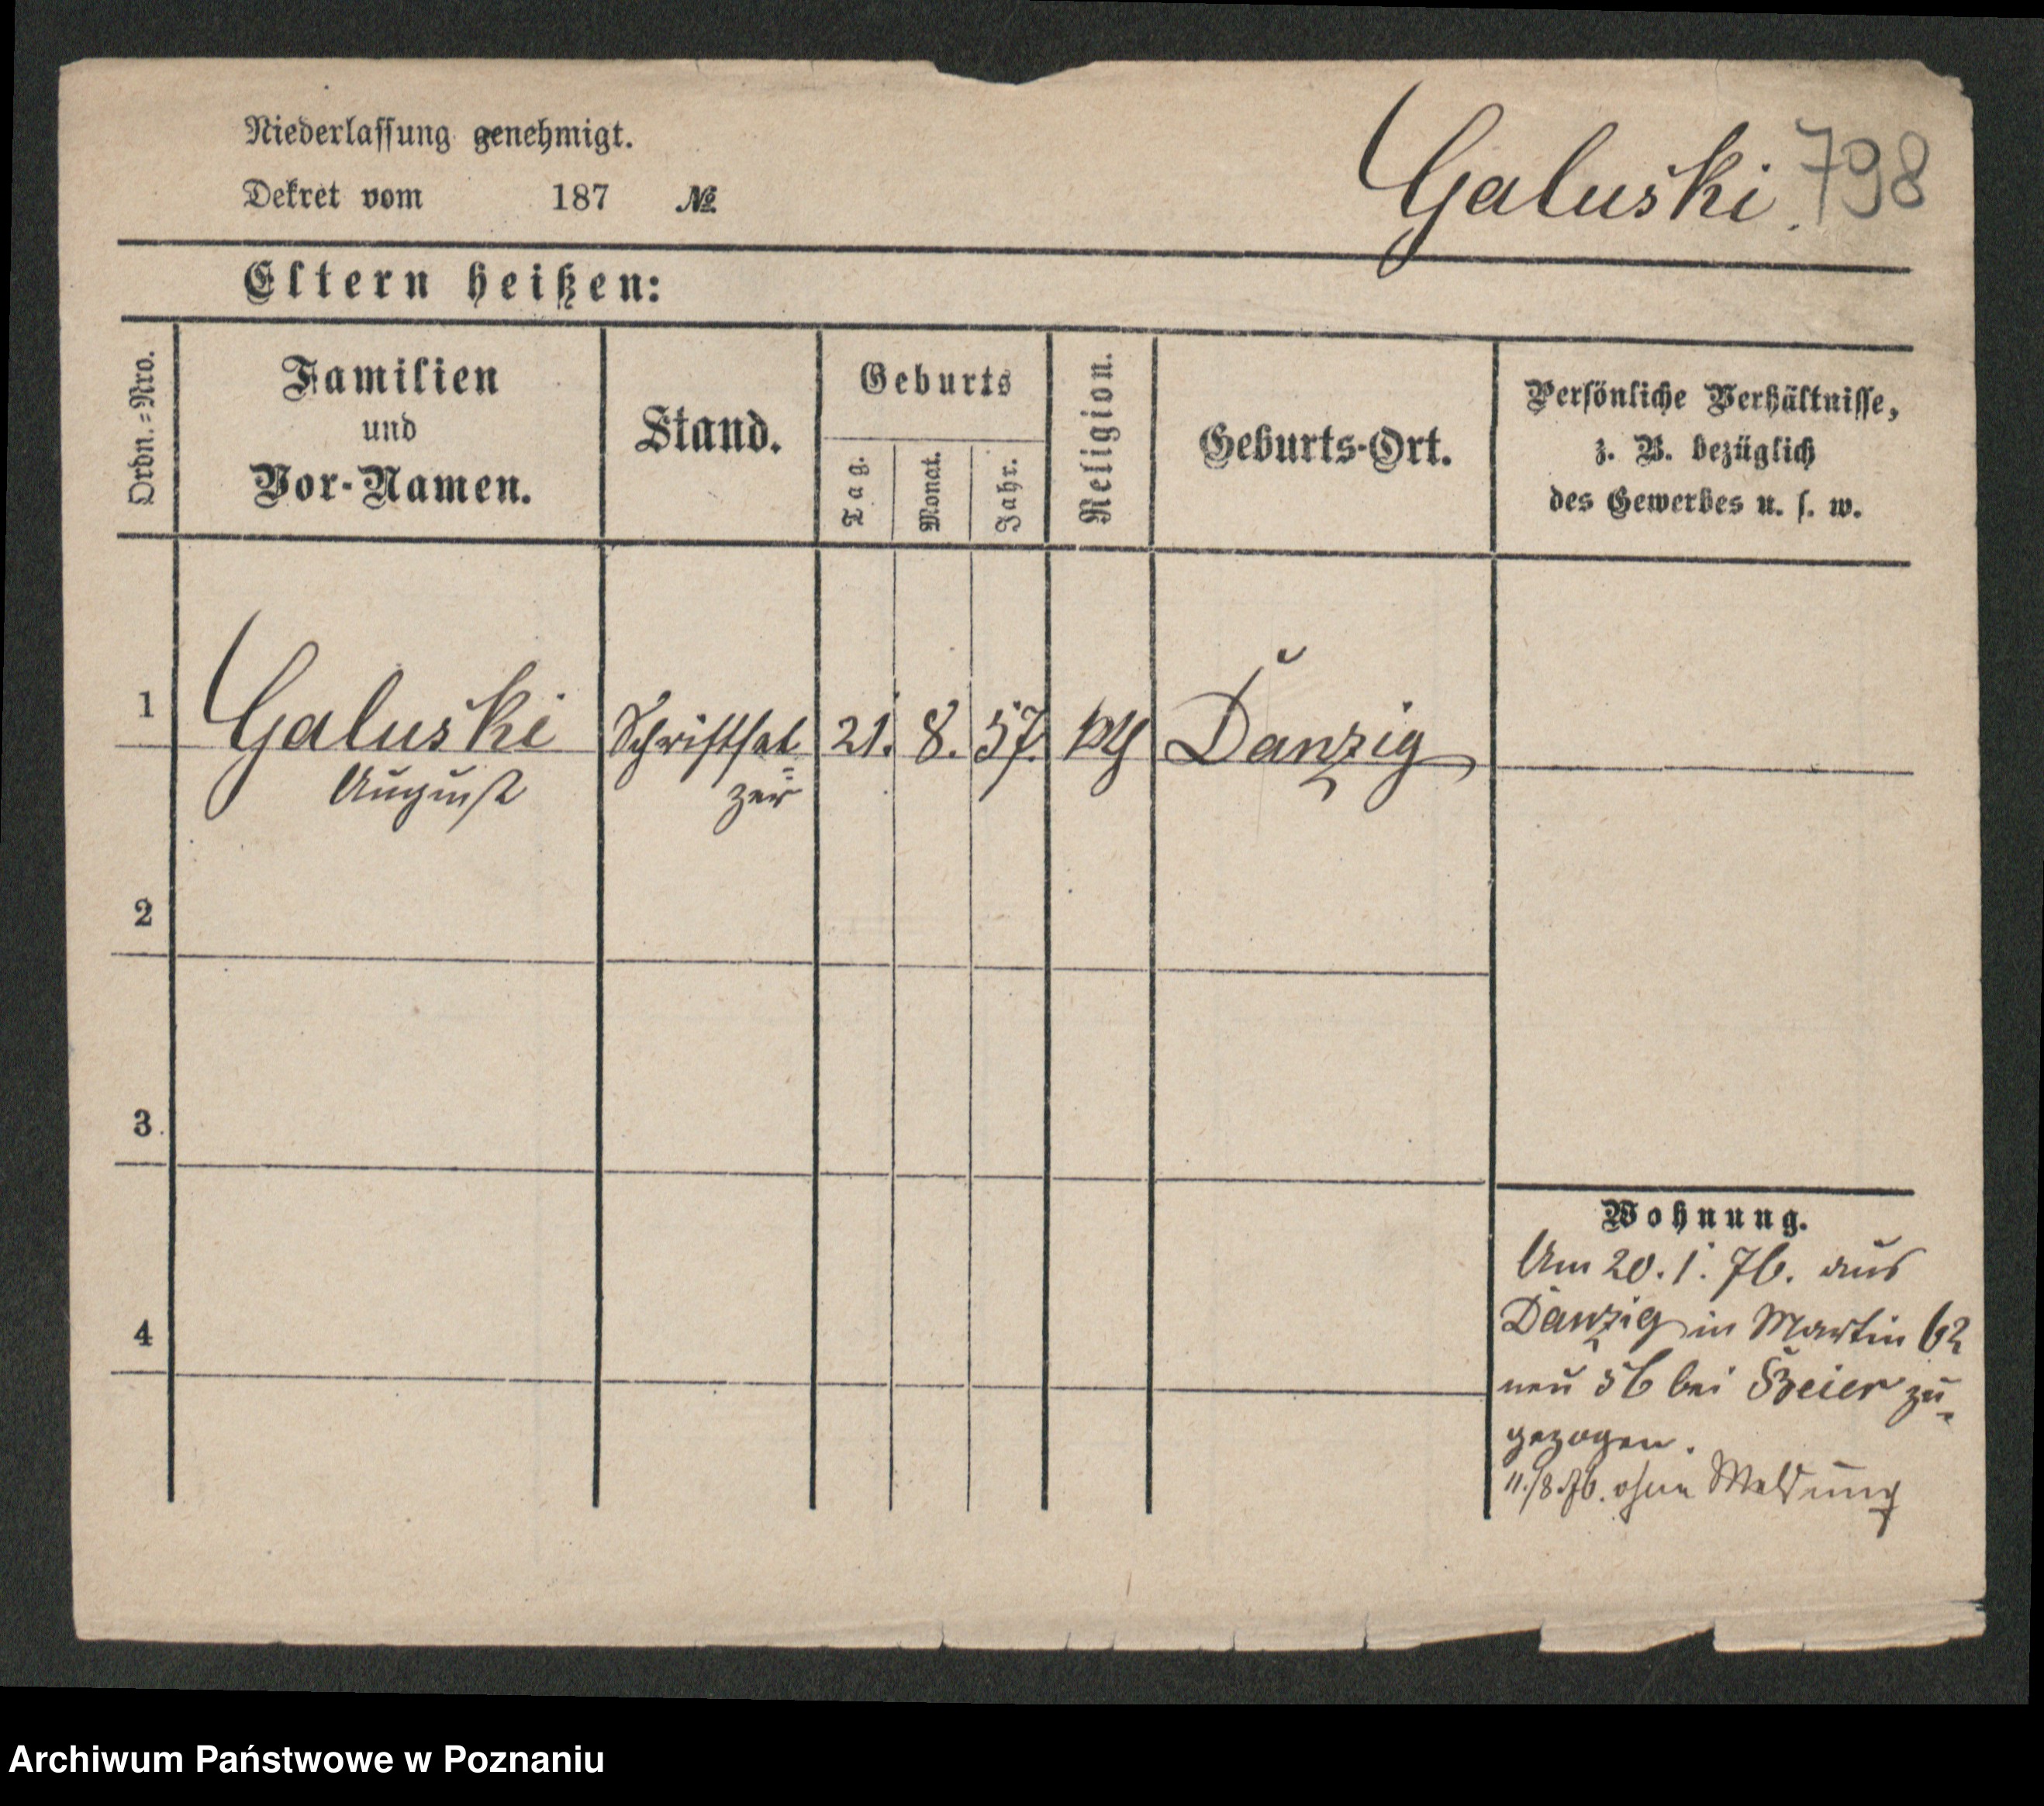 Niederlassung genehmigt.
Dekret vom 187 №
Galuski. 798
Eltern heißen:
Ordn.=Nro.
Familien
und
Vor-Namen.
Stand.
Geburts
Tag.
Monat.
Jahr.
Religion.
Geburts-Ort.
Persönliche Verhältnisse,
z. B. bezüglich
des Gewerbes u. s. w.
1 Galuski Schriftset 21. 8. 57. Danzig
August zer
2
3
4
Wohnung.
Am 20. 1. 76. aus
Danzig in Martin 62
neu 56 bei zu
gezogen.
11./8.76. ohne Meldung
Archiwum Państwowe w Poznaniu